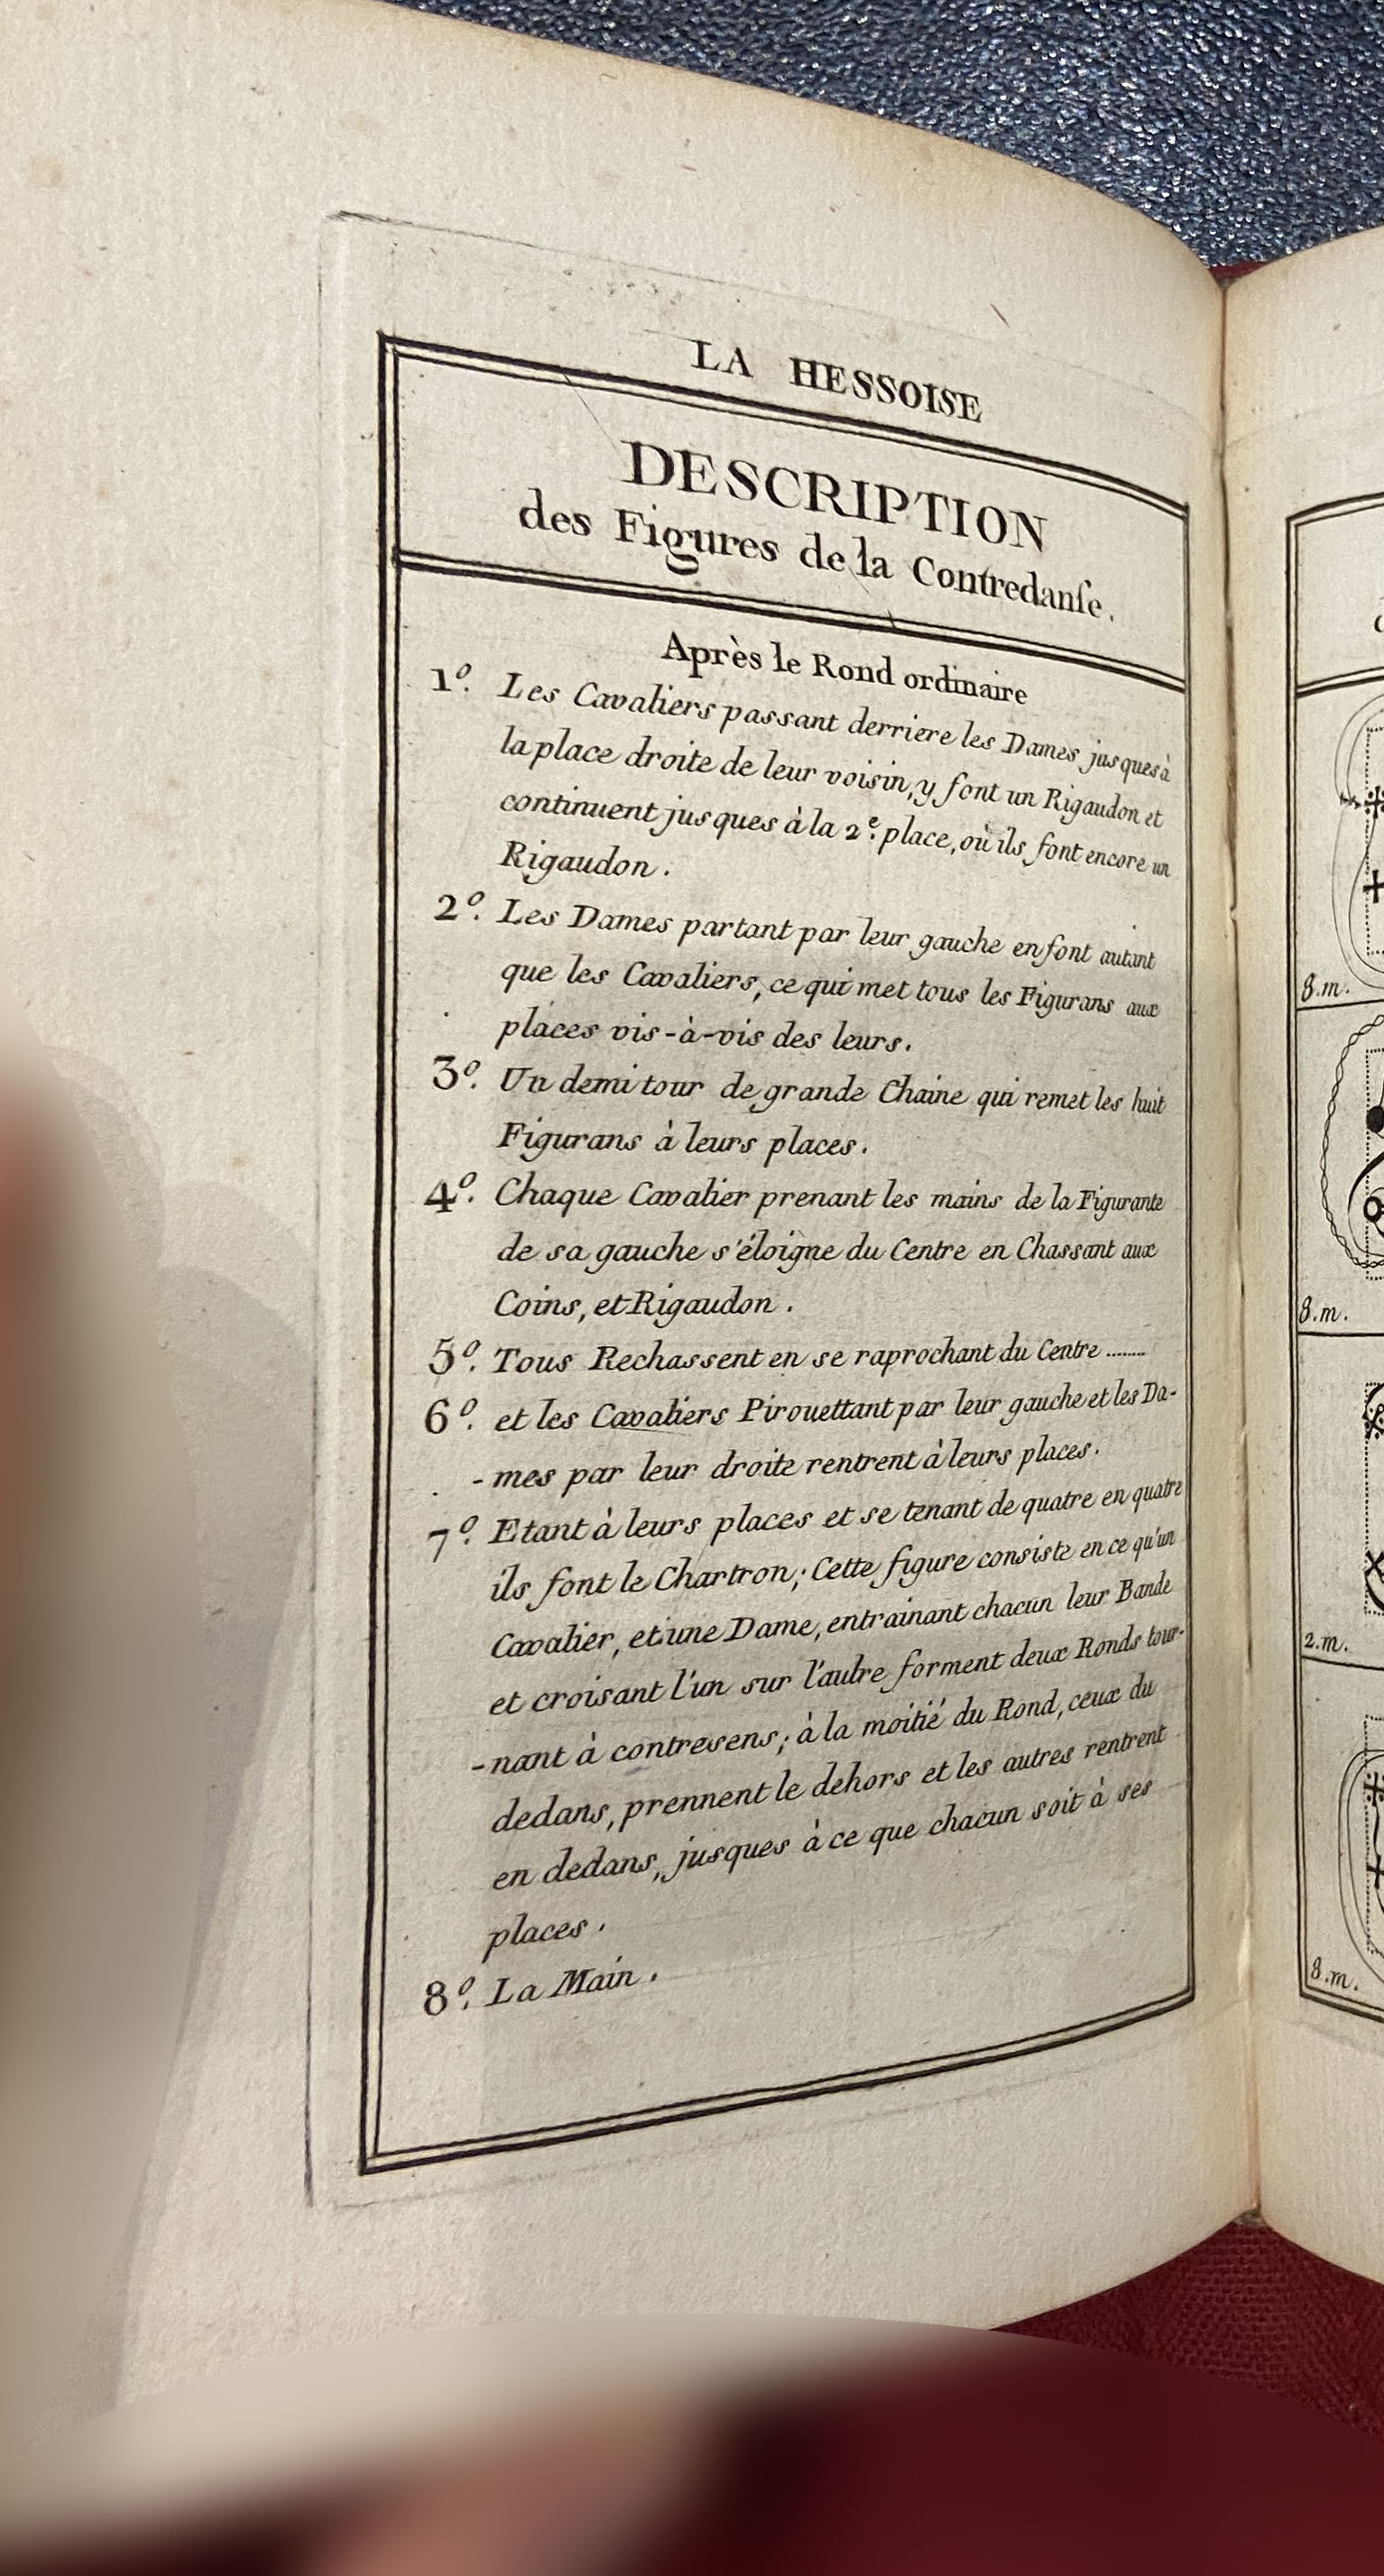 LA HESSOISE
DESCRIPTION
des Figures de la Contredanſe.
Après le Rond ordinaire
1º. Les Cavaliers passant derriere les Dames jusques à
la place droite de leur voisin, y font un Rigaudon et
continuent jusques à la 2e. place, où ils font encore un
Rigaudon.
2º. Les Dames partant par leur gauche en font autant
que les Cavaliers, ce qui met tous les Figurans aux
places vis-à-vis des leurs.
3º. Un demi tour de grande Chaine qui remet les huit
Figurans à leurs places.
4º. Chaque Cavalier prenant les mains de la Figurante
de sa gauche s'éloigne du Centre en Chassant aux
Coins, et Rigaudon.
5º. Tous Rechassent en se raprochant du Centre ........
6º. et les Cavaliers Pirouettant par leur gauche et les Da-
-mes par leur droite rentrent à leurs places.
7º. Etant à leurs places et se tenant de quatre en quatre
ils font le Chartron; Cette figure consiste en ce qu'un
Cavalier, et une Dame, entrainant chacun leur Bande
et croisant l'un sur l'autre forment deux Ronds tour-
-nant à contresens; à la moitié du Rond, ceux du
dedans, prennent le dehors et les autres rentrent
en dedans, jusques à ce que chacun soit à ses
places.
8º. La Main.
8.m.
8.m.
2.m.
8.m.